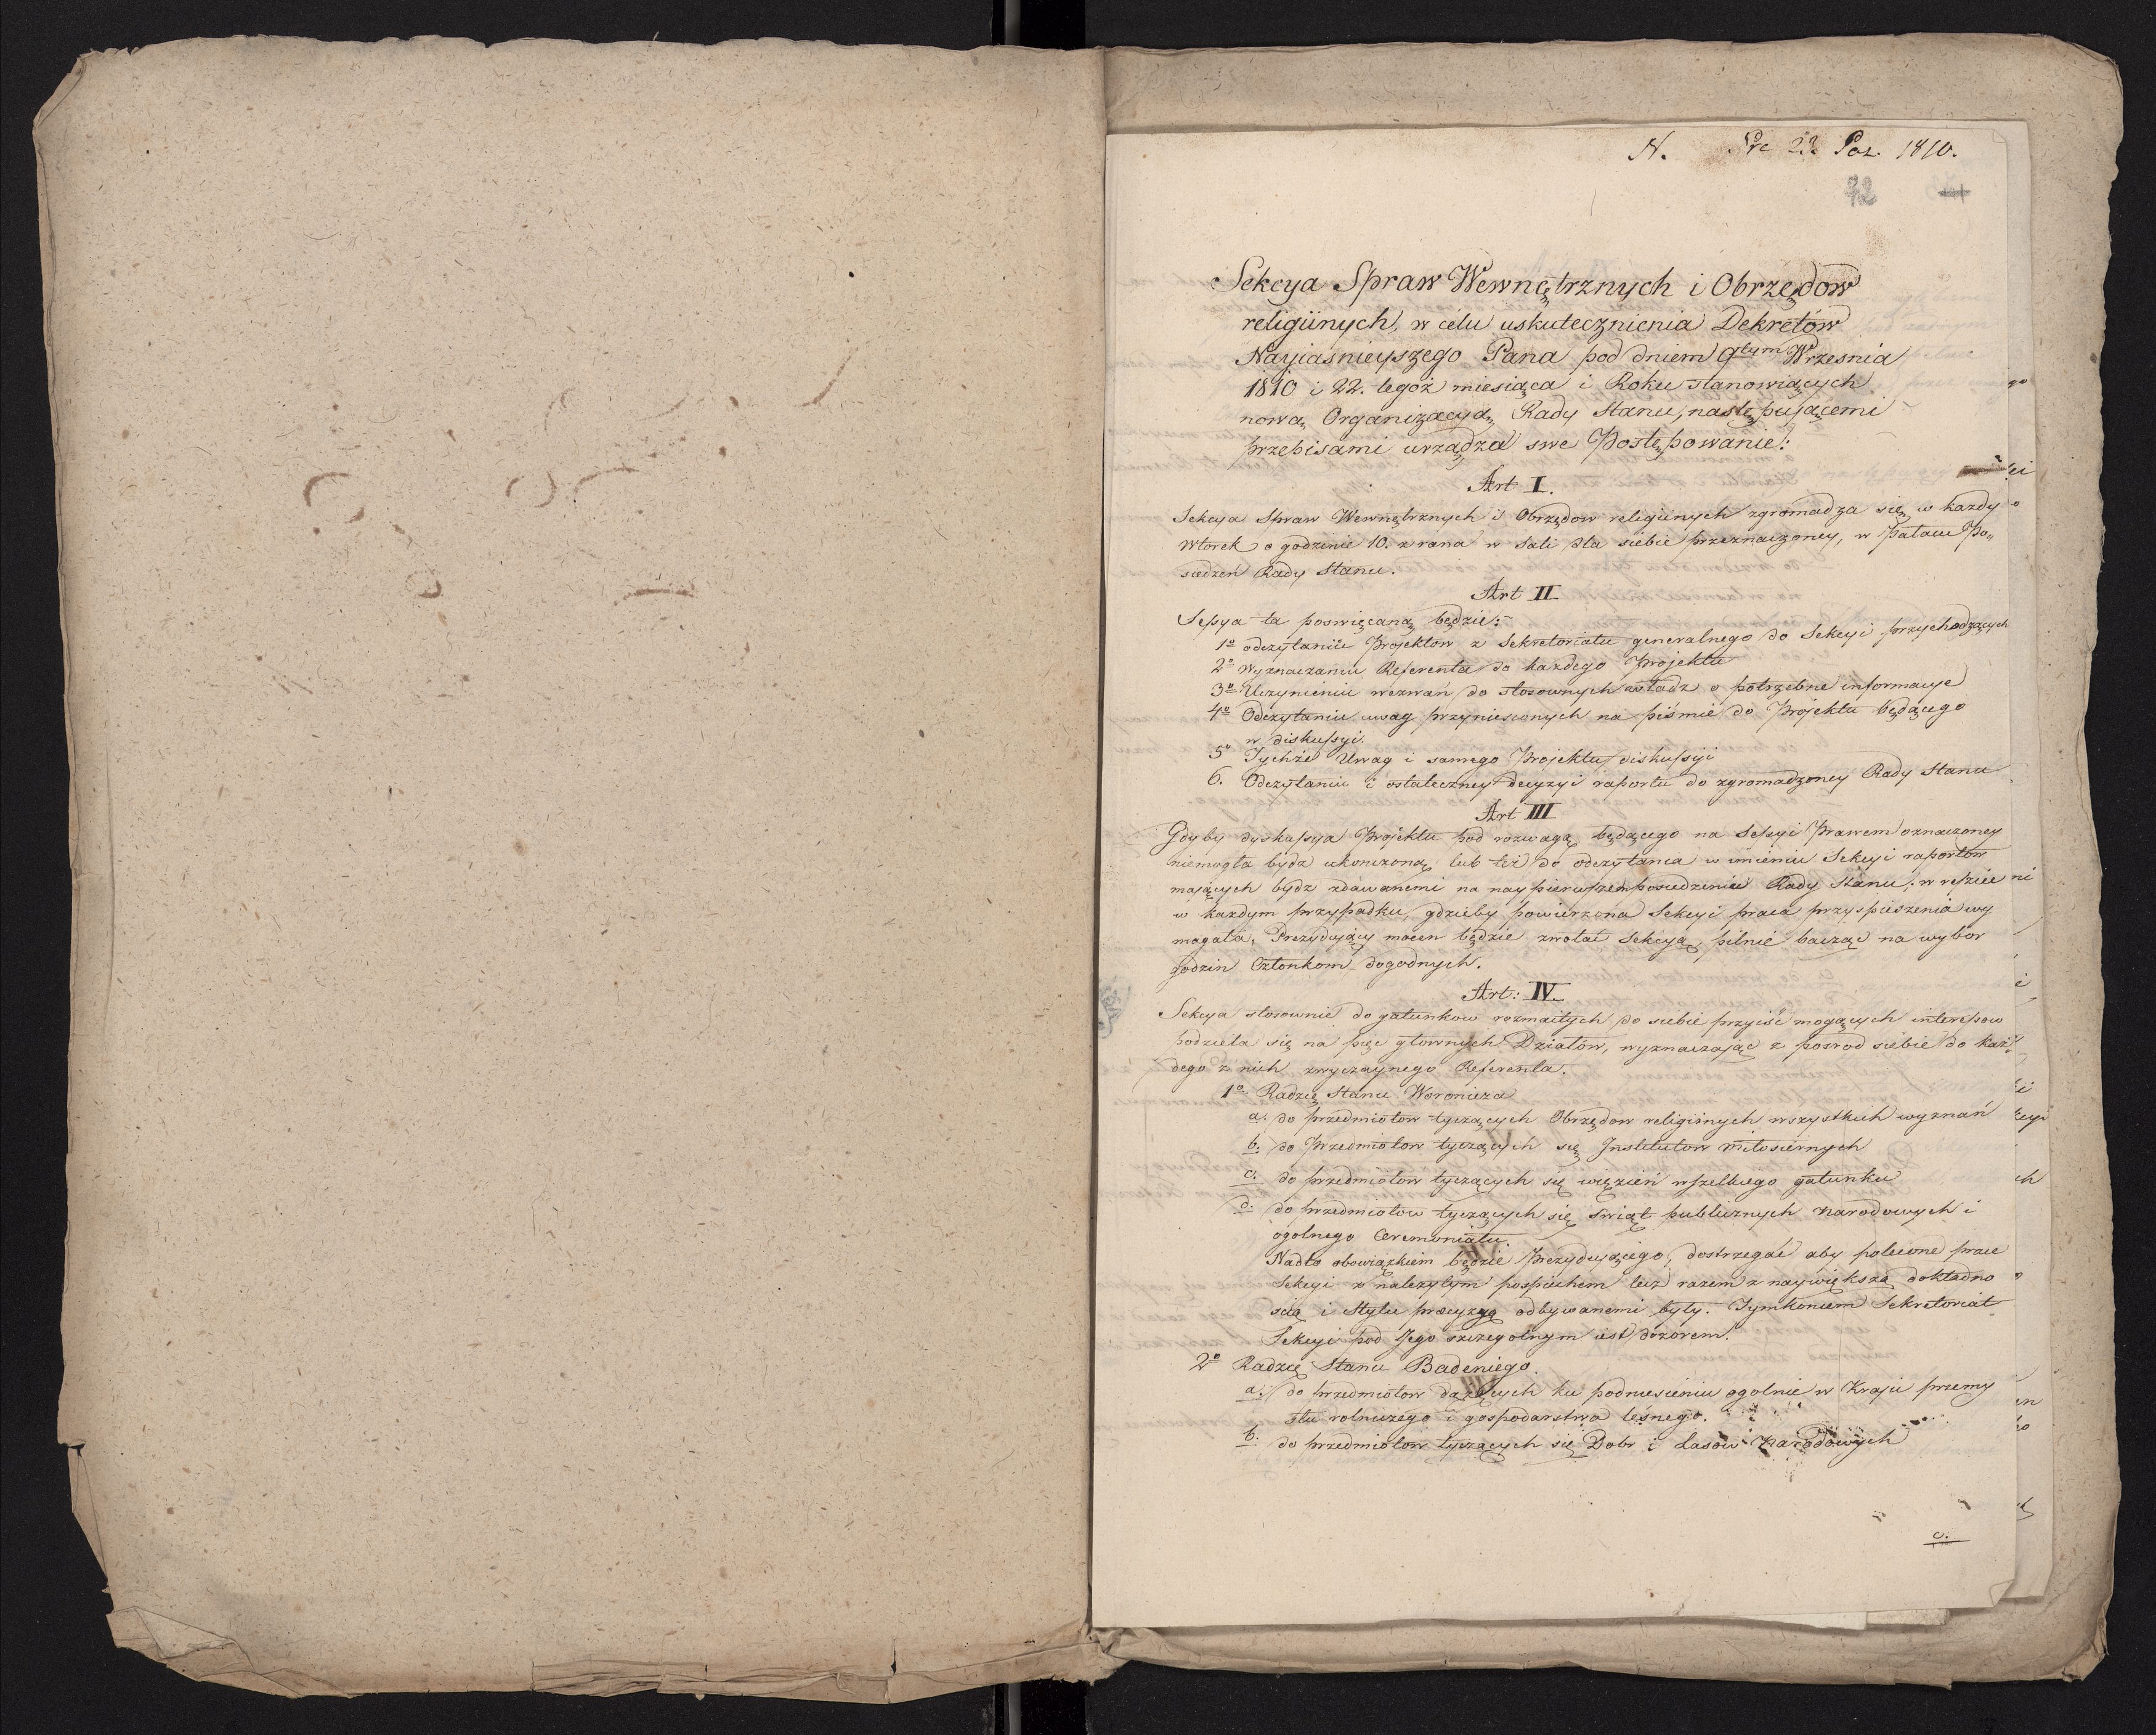 N. Pre 22. Paz. 1810.
72
Sekcya Spraw Wewnętrznych i Obrzędow
religiinych, w celu uskutecznienia Dekretów
Nayiasnieyszego Pana pod dniem 9tym Wrzesnia
1810 i 22. tegoż miesiąca i Roku stanowiących
nową Organizacyą Rady Stanu, następującemi
przepisami urządza swe Postępowanie:
Art I.
Sekcya Spraw Wewnętrznych i Obrzędow religiinych zgromadza się w każdy
Wtorek o godzinie 10. z rana w Sali dla siebie przeznaczoney, w Pałacu Po„
siedzeń Rady Stanu.
Art II
Sessya ta poswięcaną będzie:
1o odczytaniu Projektow z Sekretoriatu generalnego do Sekcyi przychodzących
2o Wyznaczaniu Referenta do każdego Projektu
3o Uczynieniu wezwań do stosownych władz o potrzebne informacye
4o Odczytaniu uwag przyniesionych na piśmie do Projektu będącego
w diskussyi.
5o Tychże Uwag i samego Projektu diskussyi
6. Odczytaniu i ostateczney decyzyi raportu do zgromadzoney Rady Stanu
Art III
Gdyby dyskussya Projektu pod rozwagą będącego na Sessyi Prawem oznaczoney
niemogła bydz ukonczoną lub też do odczytania w imieniu Sekcyi raportow
mających bydz zdawanemi na naypierwszem posiedzeniu Rady Stanu; w reszcie
w każdym przypadku, gdzieby powierzona Sekcyi praca przyspieszenia wy
magała, Prezydujący mocen będzie zwołać Sekcyą, pilnie bacząc na wybor
godzin Członkom dogodnych.
Art: IV.
Sekcya stosownie do gatunkow rozmaitych do siebie przyiść mogących interessow
podzieła się na pięć głownych Działów, wyznaczaiąc z posrod siebie do każ
dego z nich zwyczaynego Referenta.
1o Radzcę Stanu Woronicza
a. do przedmiotow tyczących Obrzędow religiinych wszystkich wyznań
b. do Przedmiotow tyczących się Institutow miłosiernych
c. do przedmiotow tyczących się więzień wszelkiego gatunku
d. do przedmiotow tyczących się świąt publicznych narodowych i
ogolnego Ceremoniału.
Nadto obowiązkiem będzie Prezydującego, dostrzegać aby polecone prace
Sekcyi z należytym pospiechem lecz razem z naywiększą dokładno
scią i Stylu precyzyą odbywanemi były. Tymkoncem Sekretoriat
Sekcyi pod Jego szczegolnym iest dozorem.
2o Radzcę Stanu Badeniego.
a. do przedmiotow dążących ku podniesieniu ogolnie w Kraju przemy
słu rolniczego i gospodarstwa leśnego.
b. do przedmiotow tyczących się Dobr i Lasów Narodowych
c.